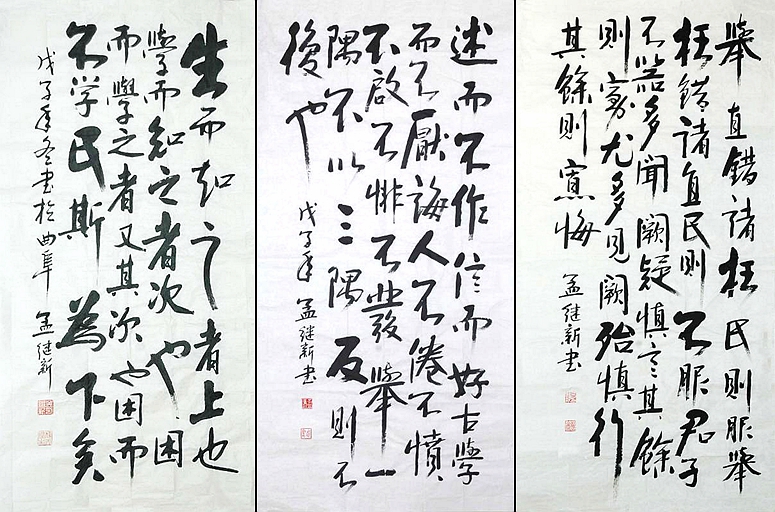 舉直錯諸枉民則服舉
枉錯諸直民則不服君子
不器多聞闕疑慎言其餘
則寡尤多見闕殆慎行
其餘則寡悔 孟继新书
述而不作信而好古學
而不厭誨人不倦不憤
不啟不悱不發舉一
隅不以三隅反則不
復也 戊子年 孟继新书
生而知之者上也
學而知之者次也困
而學之者又其次也困而
不学民斯為下矣
戊子年冬书於曲阜 孟继新